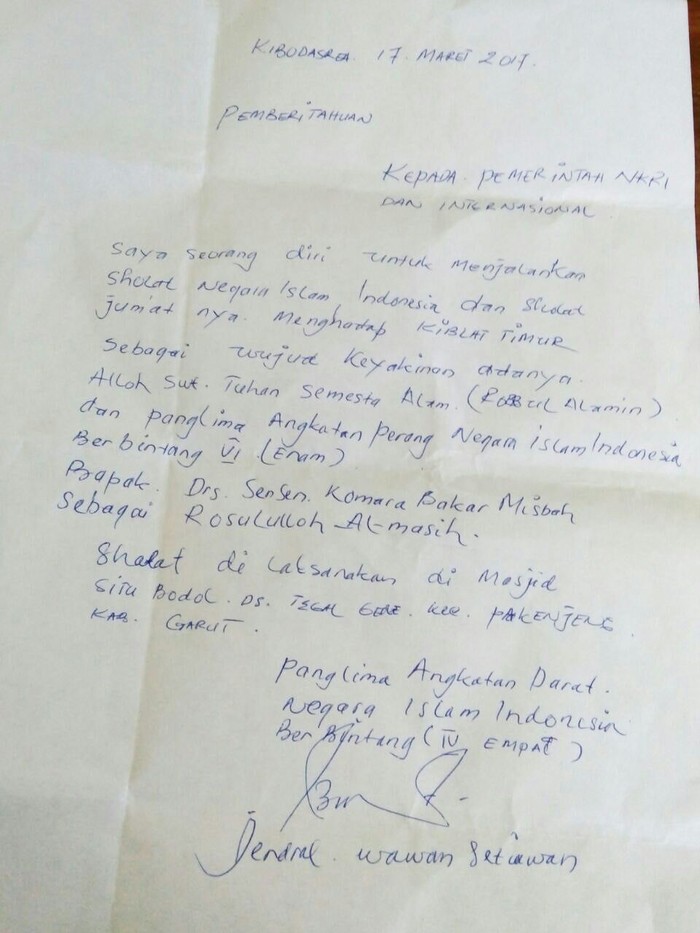 17 MARET 2017.
PEMBERITAHUAN
KEPADA. PEMERINTAH NKRI
DAN INTERNASIONAL
Saya seorang diri untuk menjalankan
Sholat Negara Islam Indonesia dan Sholat
jum'at nya. Menghadap KIBLAT TIMUR
Sebagai wujud Keyakinan adanya.
Alloh Swt. Tuhan Semesta Alam. (Robbul Alamin)
dan panglima Angkatan perang Negara islam Indonesia
Berbintang VI (Enam)
Bapak. Drs. Sensen. Komara Bakar Misbah
Sebagai Rosululloh Al-masih.
Shalat di laksanakan di Masjid
SITU BODOL. DS. TEGAL GEDE. KEC. PAKENJENG
KAB. GARUT.
Panglima Angkatan Darat.
Negara Islam Indonesia
Berbintang (IV EMPAT)
Jendral. Wawan Setiawan